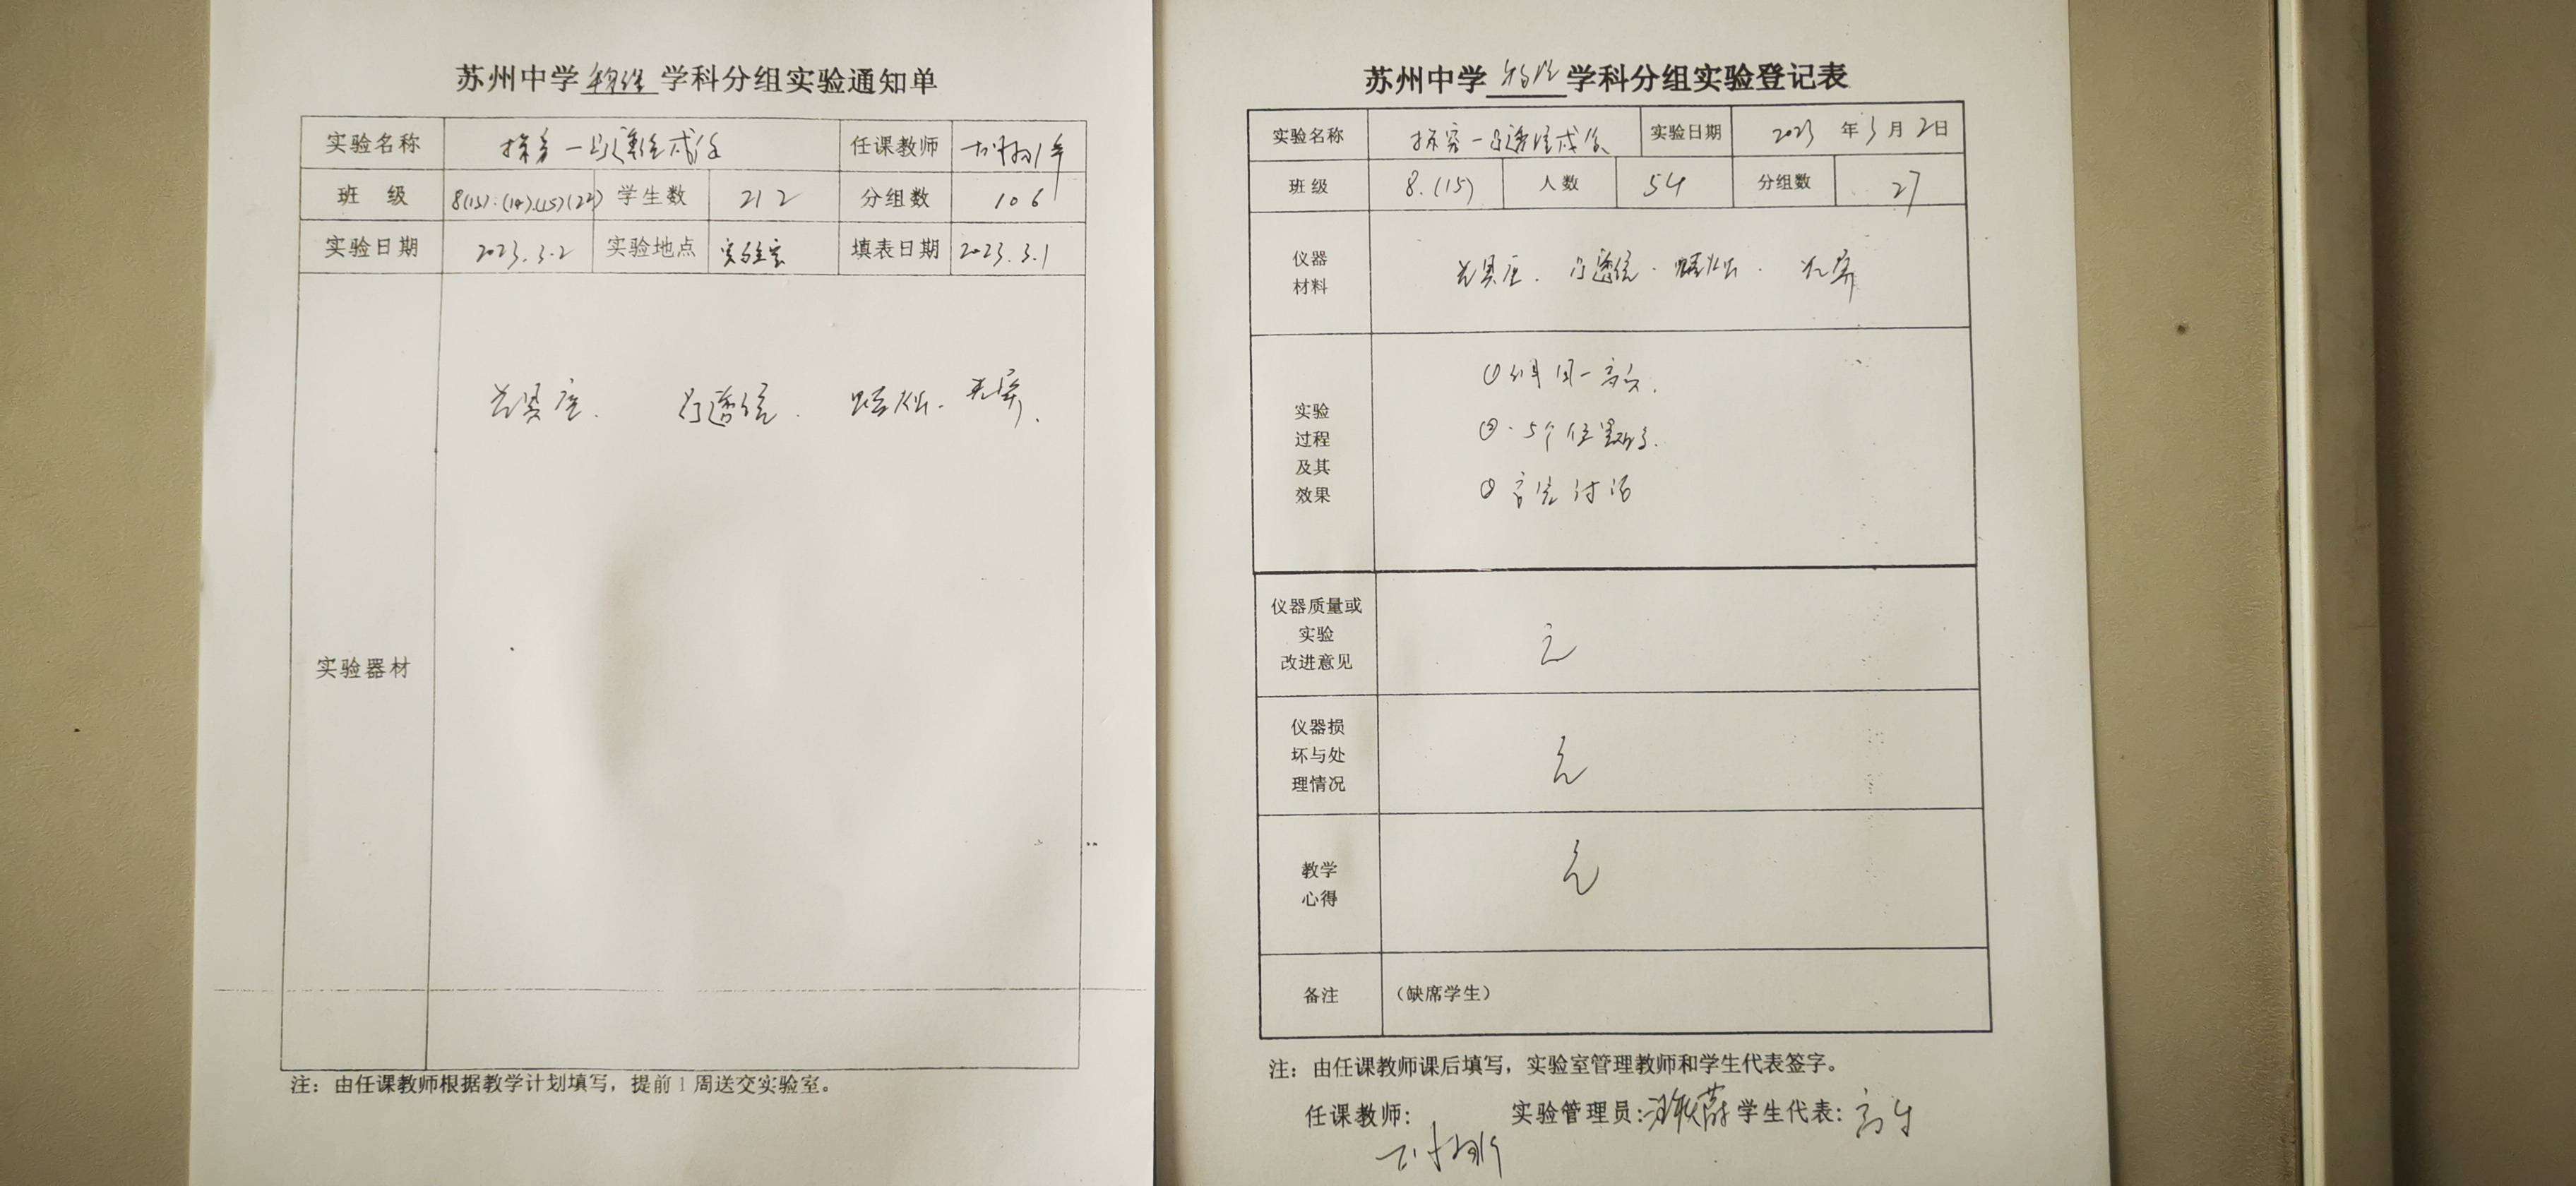 苏州中学物理学科分组实验通知单
实验名称 探究一凸透镜成像 任课教师
班 级 学生数 212 分组数 106
实验日期 2023.3.2 实验地点 实验室 填表日期 2023.3.1
光具座. 凸透镜. 蜡烛. 光屏.
实验器材
注：由任课教师根据教学计划填写，提前1周送交实验室。
苏州中学物理学科分组实验登记表
实验名称 探究一凸透镜成像 实验日期 2023 年 3 月 2 日
班级 8.(15) 人数 54 分组数 27
仪器
材料
光具座. 凸透镜. 蜡烛. 光屏
实验
过程
及其
效果
① 同一高度.
②. 5个位置
③ 讨论
仪器质量或
实验
改进意见
无
仪器损
坏与处
理情况
无
教学
心得
无
备注 （缺席学生）
注：由任课教师课后填写，实验室管理教师和学生代表签字。
任课教师: 实验管理员: 学生代表: